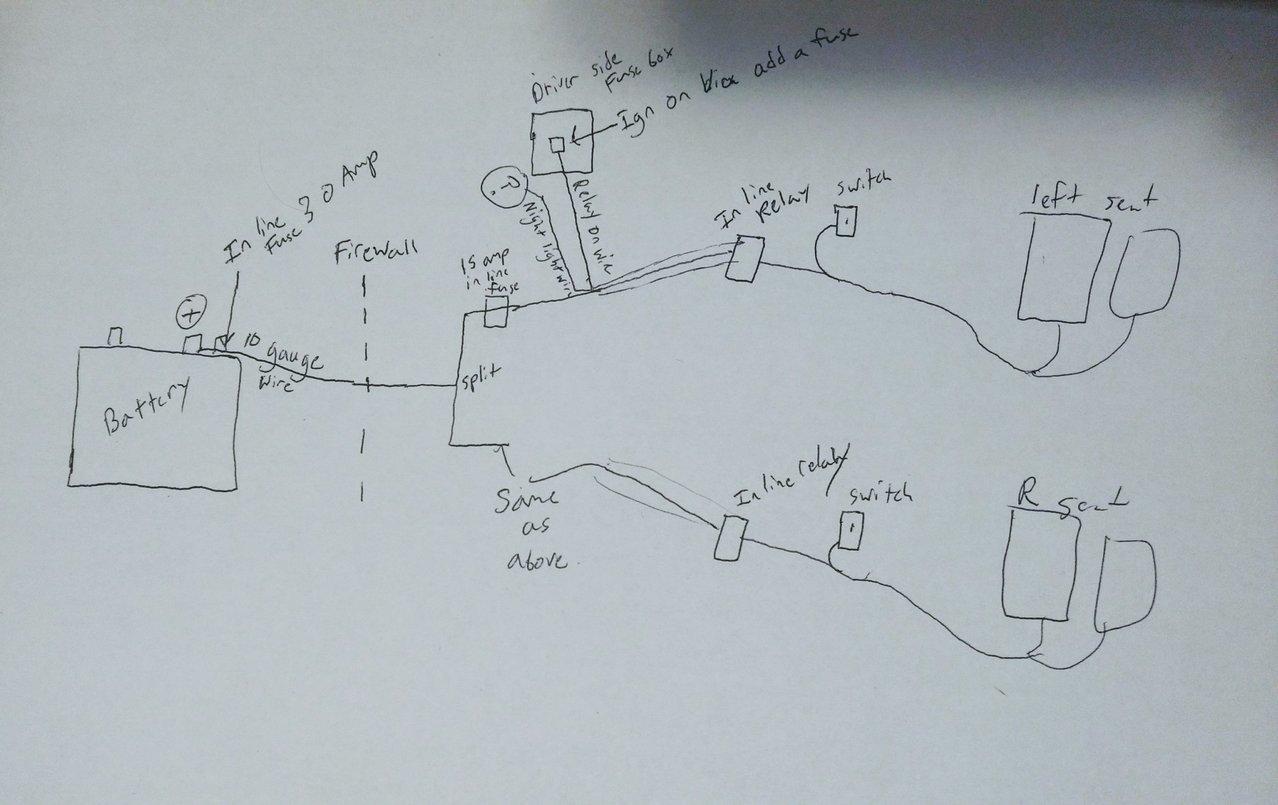 Driver side
Fuse box
Ign on Via add a fuse
In line
Fuse 30 Amp
Firewall
15 amp
in line
fuse
?
Night light wire
Relay on wire
In line
Relay
switch
left seat
+
10 gauge
wire
Battery
split
Same
as
above.
Inline relay
switch
R seat